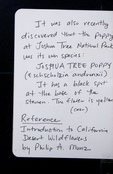 It was also recently
discovered that the poppy
at Joshua Tree National Park
was its own species:
JOSHUA TREE POPPY
(Eschscholzia androuxii)
It has a black spot
at the base of the
stamen. The flower is yellow
(over)
Reference
Introduction to California
Desert Wildflowers
by Philip A. Munz